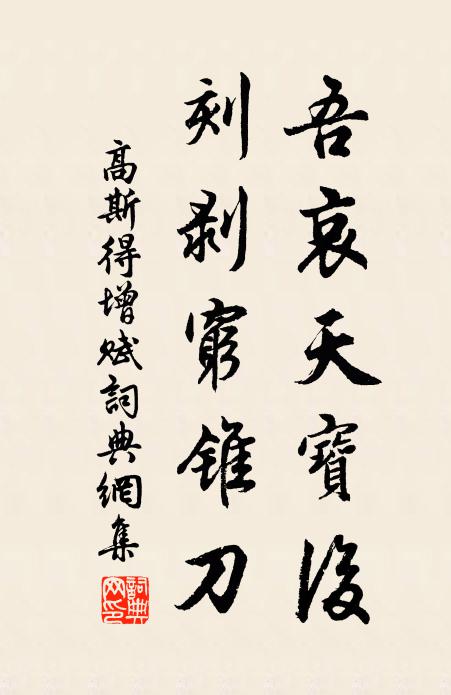 吾哀天寶後
刻剥窮錐刀
高斯得增賦詞典網集
詞典網印